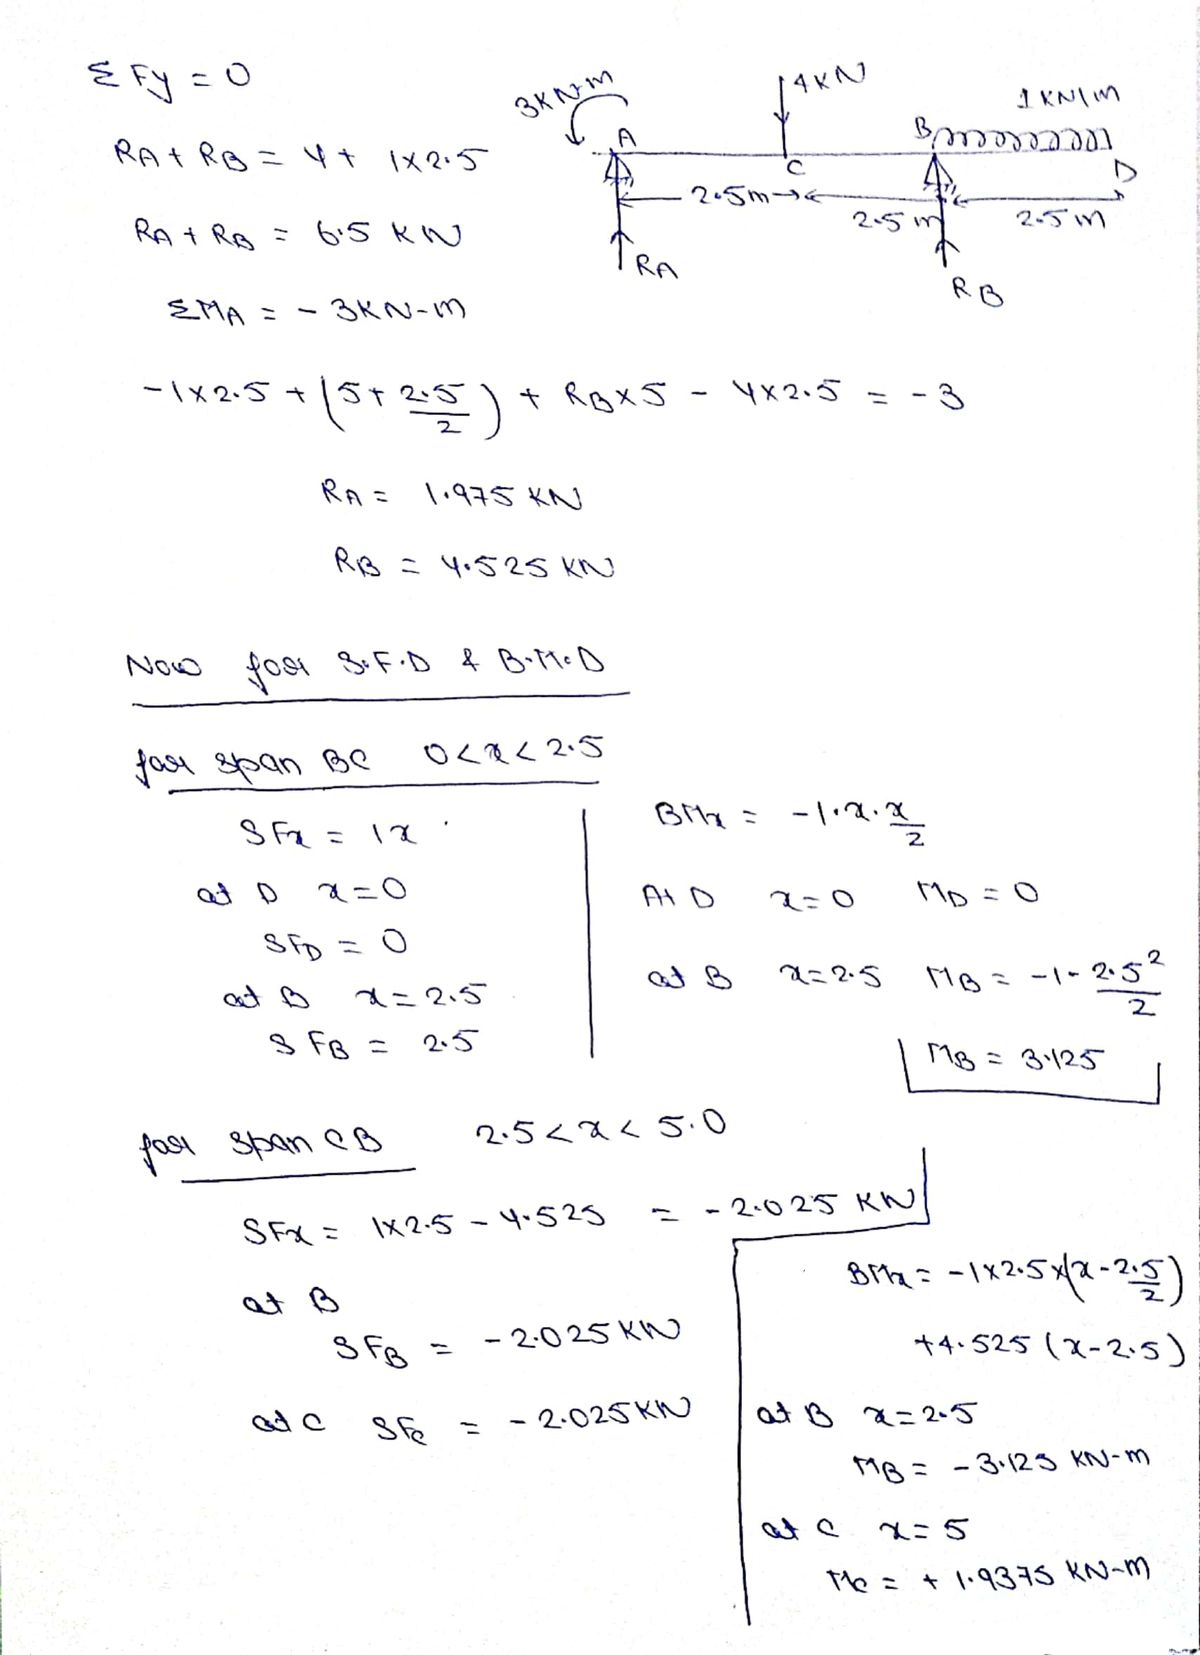 Σ Fy = 0
RA + RB = 4 + 1×2.5
RA + RB = 6.5 KN
ΣMA = - 3KN-m
3KN-m
4KN
1 KN/m
A
B
C
D
2.5m
2.5 m
2.5 m
RA
RB
-1×2.5 + (5+2.5/2) + RB×5 - 4×2.5 = -3
RA = 1.975 KN
RB = 4.525 KN
Now for S.F.D & B.M.D
for span BC 0<x<2.5
SFx = 1x
at D x=0
SFD = 0
at B x=2.5
SFB = 2.5
BMx = -1.x.x/2
At D x=0 MD = 0
at B x=2.5 MB = -1-2.5²/2
MB = 3.125
for span CB 2.5<x<5.0
SFx = 1×2.5 - 4.525 = -2.025 KN
at B
SFB = -2.025 KN
at C SFC = -2.025 KN
BMx = -1×2.5×(x-2.5/2)
+4.525 (x-2.5)
at B x=2.5
MB = -3.125 KN-m
at C x=5
Mc = + 1.9375 KN-m